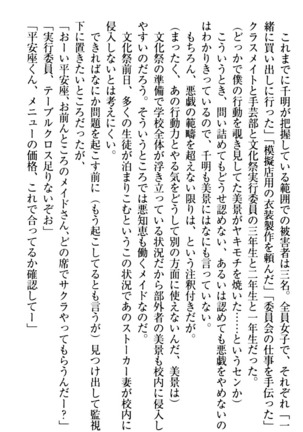 これまでに千明が把握している範囲での被害者は三名。全員女子で、それぞれ「一
緒に買い出しに行った」「模擬店用の衣装製作を頼んだ」「委員会の仕事を手伝った」
クラスメイトと手芸部と文化祭実行委員の三年生と二年生と一年生だった。
(どっかで僕の行動を覗き見してた美景がヤキモチを焼いた……というセンか)
こういうとき、問い詰めてもどうせ認めない、あるいは認めても悪戯をやめないの
はわかりきっているので、千明も美景にはなにも言っていない。
もちろん、悪戯の範疇を超えない限りは、という注釈付きだが。
(まったく、あの行動力とやる気をどうして別の方面に使えないんだ、美景は)
文化祭の準備で学校全体が浮き立っている状況だから部外者の美景も校内に侵入し
やすいのだろう。そういうところでは悪知恵も働くメイドなのだ。
文化祭前日、多くの生徒が泊まりこむというこの状況であのストーカー妻が校内に
侵入しないとは考えにくい。
できればなにか問題を起こす前に(もう起こしてるとも言うが)見つけ出して監視
下に置きたいところだったが、
「おーい平安座、お前んところのメイドさん、どの席でサクラやってもらうんだー?」
「実行委員、テーブルクロス足りないぞお」
「平安座くん、メニューの価格、これで合ってるか確認してー」